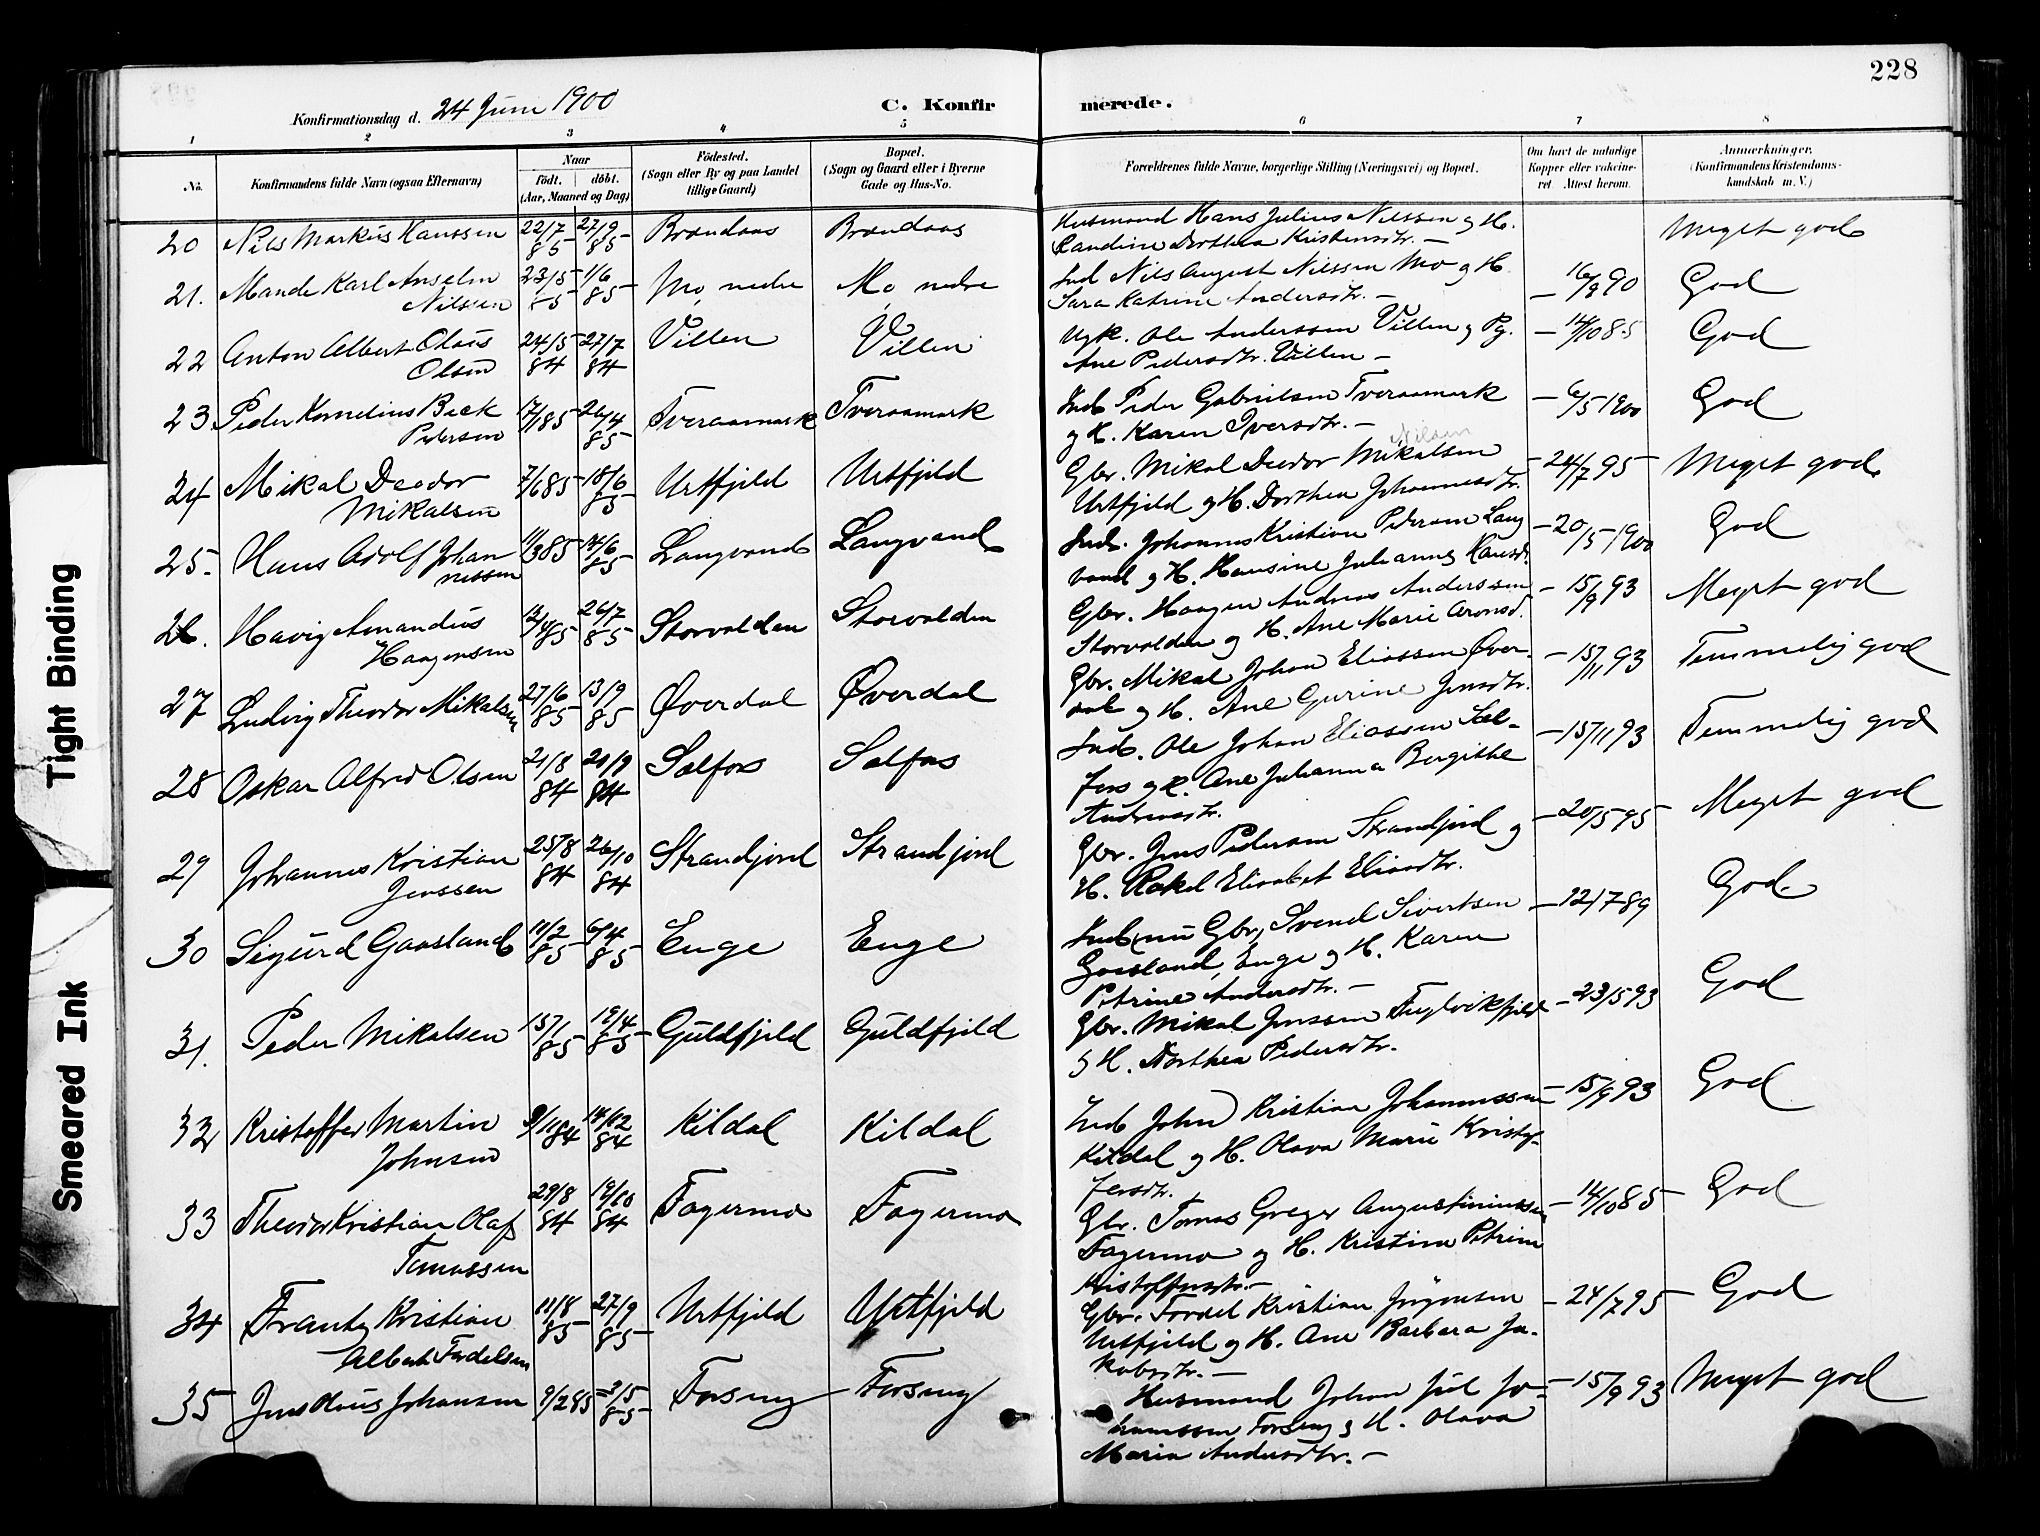 228
Konfirmationsdag d. 24 Juni 1900
C. Konfirmerede.
1 2 3 4 5 6 7 8
No.
Konfirmandens fulde Navn (ogsaa Efternavn)
Naar
Födt. döbt.
(Aar, Maaned og Dag)
Födested.
(Sogn eller By og paa Landet
tillige Gaard)
Bopæl.
(Sogn og Gaard eller i Byerne
Gade og Hus-No.
Forældrenes fulde Navne, borgerlige Stilling (Næringsvei) og Bopæl.
Om havt de naturlige
Kopper eller vakcine-
ret. Attest herom.
Anmærkninger.
(Konfirmandens Kristendoms-
kundskab m. V.)
20 Nils Markus Hanssen 22/7 85 27/9 85 Brændaas Brændaas Husmand Hans Julius Nilssen og H. Meget god
Dorthea Kristensdtr. —
21. Mande Karl Anselm 23/5 85 1/6 85 Mo, nedre Mo, nedre Ind Nils August Nilssen Mo og H. — 16/8 90 God
Nilssen Sara Katrine Andersdtr. —
22 Anton Albert Olaus 24/5 84 27/7 84 Villen Villen Ugk. Ole Anderssen Villen og Pg. — 14/10 85 God
Olsen Ane Pedersdtr. Villen —
23 Peder Kornelius Beck 17/1 85 26/4 85 Tveraamark Tveraamark Ind Peder Gabrielsen Tveraamark — 6/5 1900 God
Pedersen og H. Karen Iversdtr. —
Nilsen
24 Mikal Deodor 7/6 85 18/6 85 Urtfjeld Urtfjeld Gbr. Mikal Deodor Mikalsen — 24/7 95 Meget god
Mikalsen Urtfjeld og H. Dorthea Johannesdtr.
25. Hans Adolf Johan 11/3 85 14/6 85 Langvand Langvand Ind. Johannes Kristian Pedersen Lang — 20/5 1900 God
nessen vand og H. Hansine Julianna Hansd.
26. Havig Amandus 12/4 85 26/7 85 Storvolden Storvolden Gbr. Haagen Andreas Anderssen — 15/9 93 Meget god
Haagensen Storvolden og H. Ane Marie Aronsd.
27 Ludvig Theodor Mikalsen 27/6 85 13/9 85 Øverdal Øverdal Gbr. Mikal Johan Eliassen Øver- — 15/11 93 Temmelig god
dal og H. Ane Gurine Jensdtr.
28 Oskar Alfred Olsen 21/8 84 21/9 84 Selfors Selfors Ind. Ole Johan Eliassen Sel- — 15/11 93 Temmelig god
fors og H. Ane Johanna Bergithe
Andreasdtr.
29 Johannes Kristian 25/8 84 26/10 84 Strandjord Strandjord Gbr. Jens Pedersen Strandjord og — 20/5 95 Meget god
Jenssen H. Rakel Elisabet Eliasdtr.
30 Sigurd Gaasland 11/2 85 6/4 85 Enge Enge Ind, nu Gbr, Svend Sivertsen — 12/7 89 God
Gaasland, Enge og H. Karen
Petrine Andersdtr. —
31. Peder Mikalsen 15/1 85 19/4 85 Guldfjeld Guldfjeld Gbr. Mikal Jenssen Fuglvikfjeld — 23/5 93 God
og H. Dorthea Pedersdtr.
32 Kristoffer Martin 9/11 84 14/12 84 Kildal Kildal Ind John Kristian Johannssen — 15/9 93 God
Johnsen Kildal og H. Olava Marie Kristof-
fersdtr.
33 Theodor Kristian Olaf 29/8 84 19/10 84 Fagermo Fagermo Gbr. Tomas Greger Augustinussen — 14/10 85 God
Tomassen Fagermo og H. Kristina Petrine
Kristoffersdtr. —
34 Frantz Kristian 11/8 85 27/9 85 Urtfjeld Urtfjeld Gbr. Fordel Kristian Jörgensen — 24/7 95 God
Albert Fordelsen Urtfjeld og H. Ane Barbara Ja-
kobsdtr. —
35 Jens Olaus Johansen 9/2 85 3/5 85 Forsmy Forsmy Husmand Johan Jul Jo- — 15/9 93 Meget god
hannssen Forsmy og H. Olava
Maria Andersdtr. —
Tight Binding
Smeared Ink